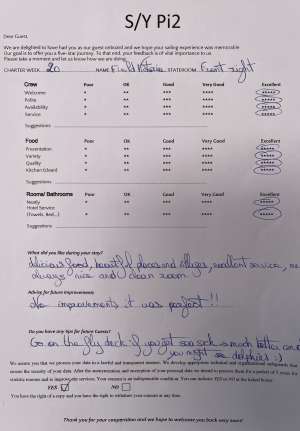 S/Y Pi2
Dear Guest,
We are delighted to have had you as our guest onboard and we hope your sailing experience was memorable
Our goal is to offer you a five-star journey. To that end, your feedback is of vital importance to us.
Please take a moment and let us know how we are doing.
CHARTER WEEK 20 NAME STATEROOM Front right
Crew Poor OK Good Very Good Excellent
Welcome * ** *** **** *****
Polite * ** *** **** *****
Availability * ** *** **** *****
Service * ** *** **** *****
Suggestions
Food Poor OK Good Very Good Excellent
Presentation * ** *** **** *****
Variety * ** *** **** *****
Quality * ** *** **** *****
Kitchen Island * ** *** **** *****
Suggestions
Rooms/ Bathrooms Poor OK Good Very Good Excellent
Neatly * ** *** **** *****
Hotel Service
(Towels, Bed...) * ** *** **** *****
Suggestions
What did you like during your stay?
delicious food, beautiful places and villages, excellent service,
always nice and clean room
Advice for future improvements
No improvements it was perfect!!
Do you have any tips for future Guests?
Go on the fly deck if you get sea sick, much better and
you might see dolphins :)
We assure you that we process your data in a lawful and transparent manner. We develop appropriate technical and organizational safeguards that
ensure the security of your data. After the summarization and encryption of your personal data we intend to process them for a period of 5 years for
statistic reasons and to improve our services. Your consent is an indispensable condition. You can indicate YES or NO at the linked boxes
YES NO
You have the right of a copy and you have the right to withdraw your consent at any time.
Thank you for your cooperation and we hope to welcome you back very soon!